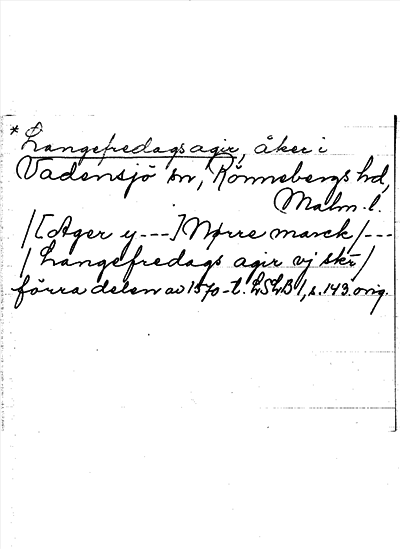 *Langefredagsagir, åker i
Vadensjö sn, Rönnebergs hd,
Malm. l.
/[Ager y---] Nørre marck /---
/ Langefredags agir vj skr /
förra delen av 1570-t. LSLB 1, s. 143. orig.